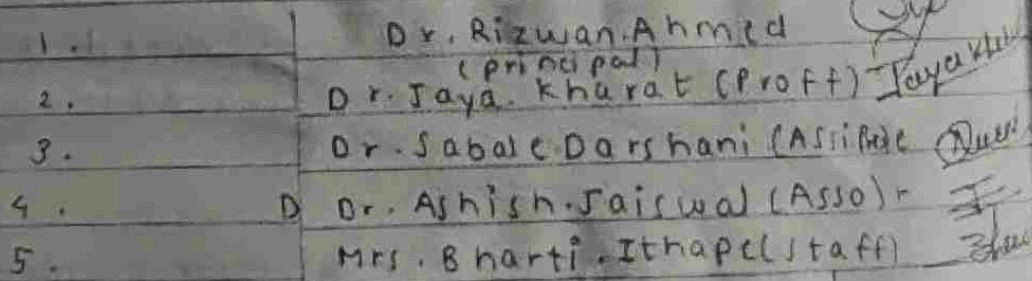 1. Dr. Rizwan.Ahmed
(principal)
2. Dr. Jaya. Kharat (Proff) Jaya
3. Dr. Sabale.Darshani
4. D Dr. Ashish.Jaiswal (Asso)r
5. Mrs. Bharti.Ithape(staff)